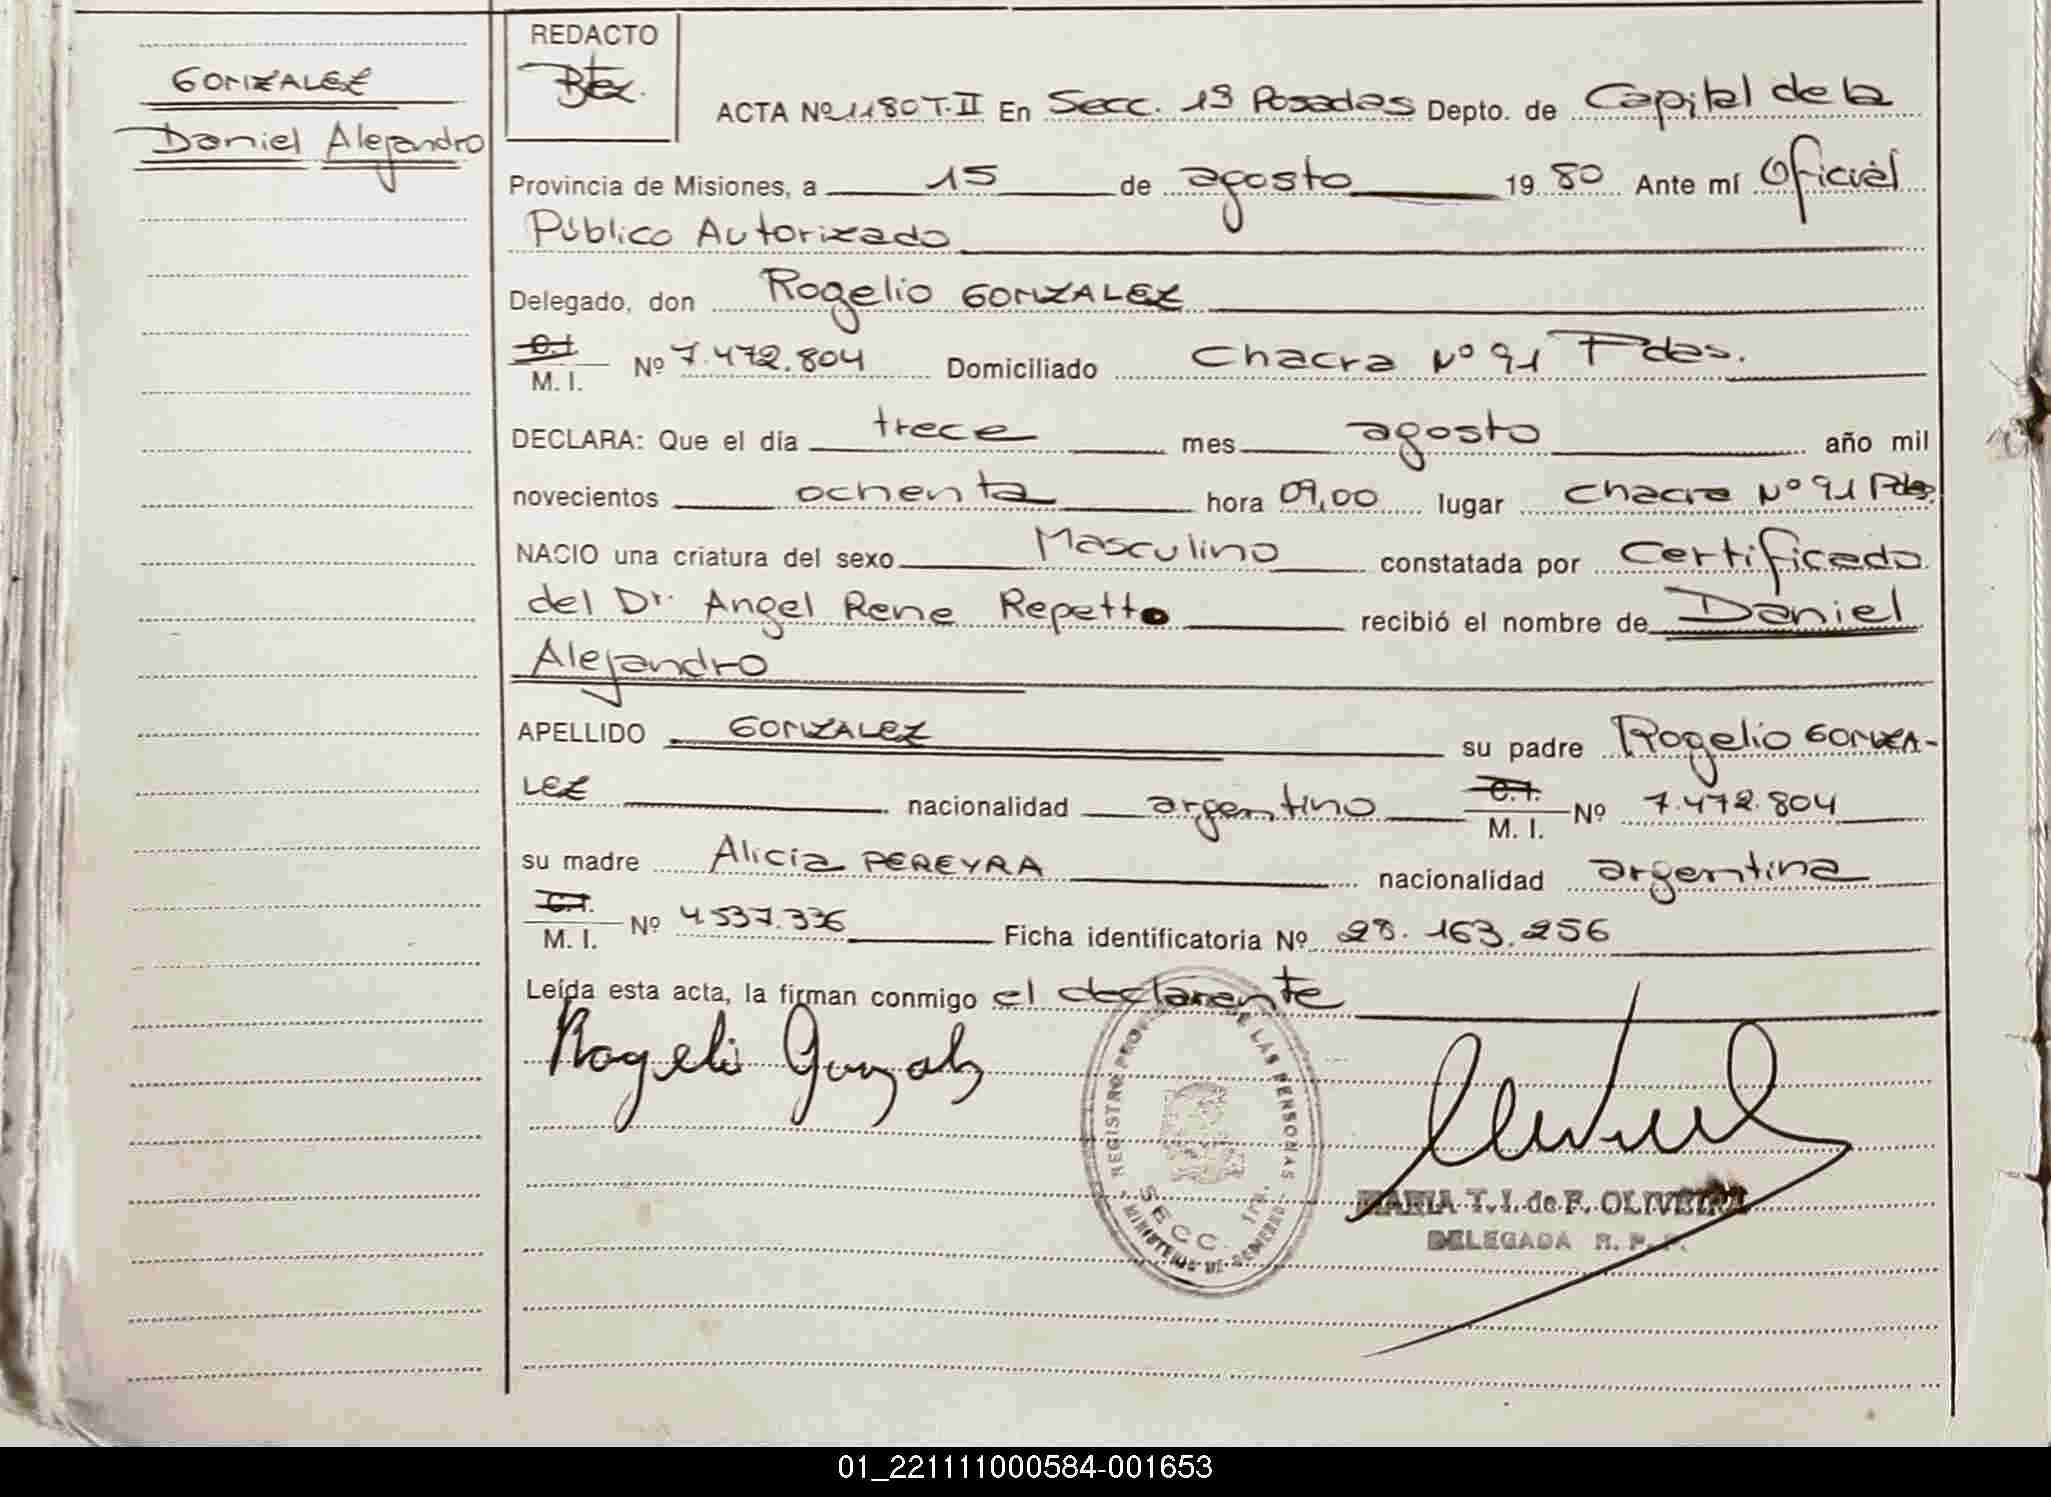 GONZALEZ
Daniel Alejandro
REDACTO
ACTA Nº 1180 T.II En Secc. 1ª Posadas Depto. de Capital de la
Provincia de Misiones, a 15 de agosto 19 80 Ante mí Oficial
Público Autorizado
Delegado, don Rogelio GONZALEZ
C.I. M. I. Nº 7.472.804 Domiciliado Chacra Nº 91 Pdas.
DECLARA: Que el día trece mes agosto año mil
novecientos ochenta hora 09,00 lugar Chacra Nº 91 Pdas
NACIO una criatura del sexo Masculino constatada por Certificado
del Dr. Angel Rene Repetto recibió el nombre de Daniel
Alejandro
APELLIDO GONZALEZ su padre Rogelio GONZA-
LEZ nacionalidad argentino C.I. M. I. Nº 7.472.804
su madre Alicia PEREYRA nacionalidad argentina
C.I. M. I. Nº 4.537.336 Ficha identificatoria Nº 28.163.256
Leída esta acta, la firman conmigo el declarante
Rogelio Gonzalez
REGISTRO PROV. DE LAS PERSONAS
SECC. 1ra.
MINISTERIO DE GOBIERNO
MARIA T. I. de F. OLIVEIRA
DELEGADA R. P. P.
01_221111000584-001653